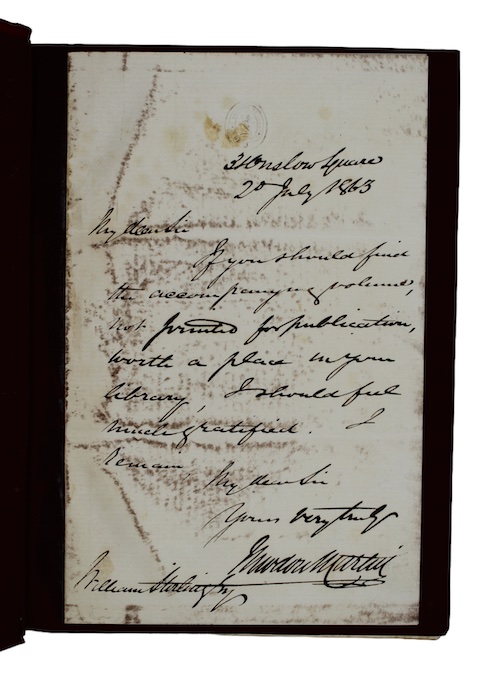 31 Onslow Square
20 July 1863
My dear Sir
If you should find
the accompanying volume,
not printed for publication,
worth a place in your
library, I should feel
much gratified. I
remain,
My dear Sir
Yours very truly
Theodore Martin
William Stirling Esq